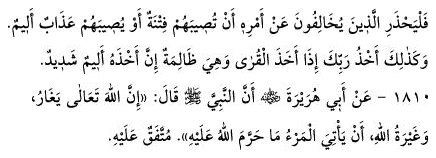 فَلْيَحْذَرِ الَّذِينَ يُخَالِفُونَ عَنْ أَمْرِهِ أَنْ تُصِيبَهُمْ فِتْنَةٌ أَوْ يُصِيبَهُمْ عَذَابٌ أَلِيمٌ.
وَكَذٰلِكَ أَخْذُ رَبِّكَ إِذَا أَخَذَ الْقُرَى وَهِيَ ظَالِمَةٌ إِنَّ أَخْذَهُ أَلِيمٌ شَدِيدٌ.
١٨١٠ - عَنْ أَبِي هُرَيْرَةَ ﵁ أَنَّ النَّبِيَّ ﷺ قَالَ: «إِنَّ اللهَ تَعَالَى يَغَارُ،
وَغَيْرَةُ اللهِ، أَنْ يَأْتِيَ الْمَرْءُ مَا حَرَّمَ اللهُ عَلَيْهِ». مُتَّفَقٌ عَلَيْهِ.